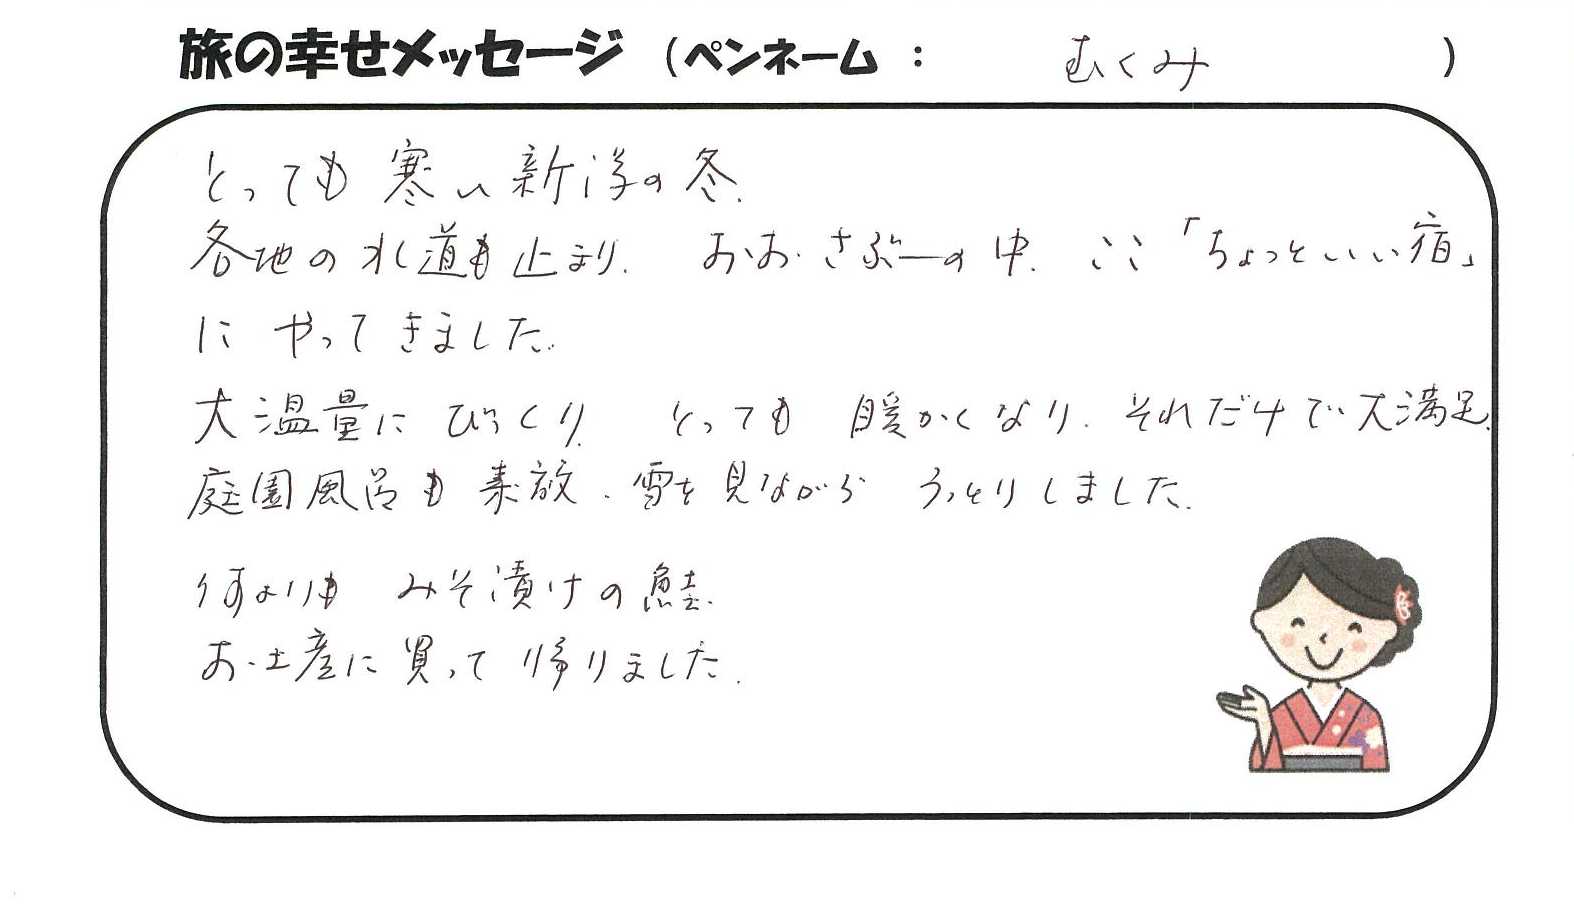 旅の幸せメッセージ （ペンネーム ： むくみ ）
とっても 寒い 新潟の冬.
各地の水道も止まり. おお.さぶーの中. ここ「ちょっといい宿」
に やってきました.
大温量に びっくり. とっても 暖かくなり. それだけで大満足.
庭園風呂も 素敵. 雪を見ながら うっとりしました.
何よりも みそ漬けの鮭.
お土産に買って 帰りました.